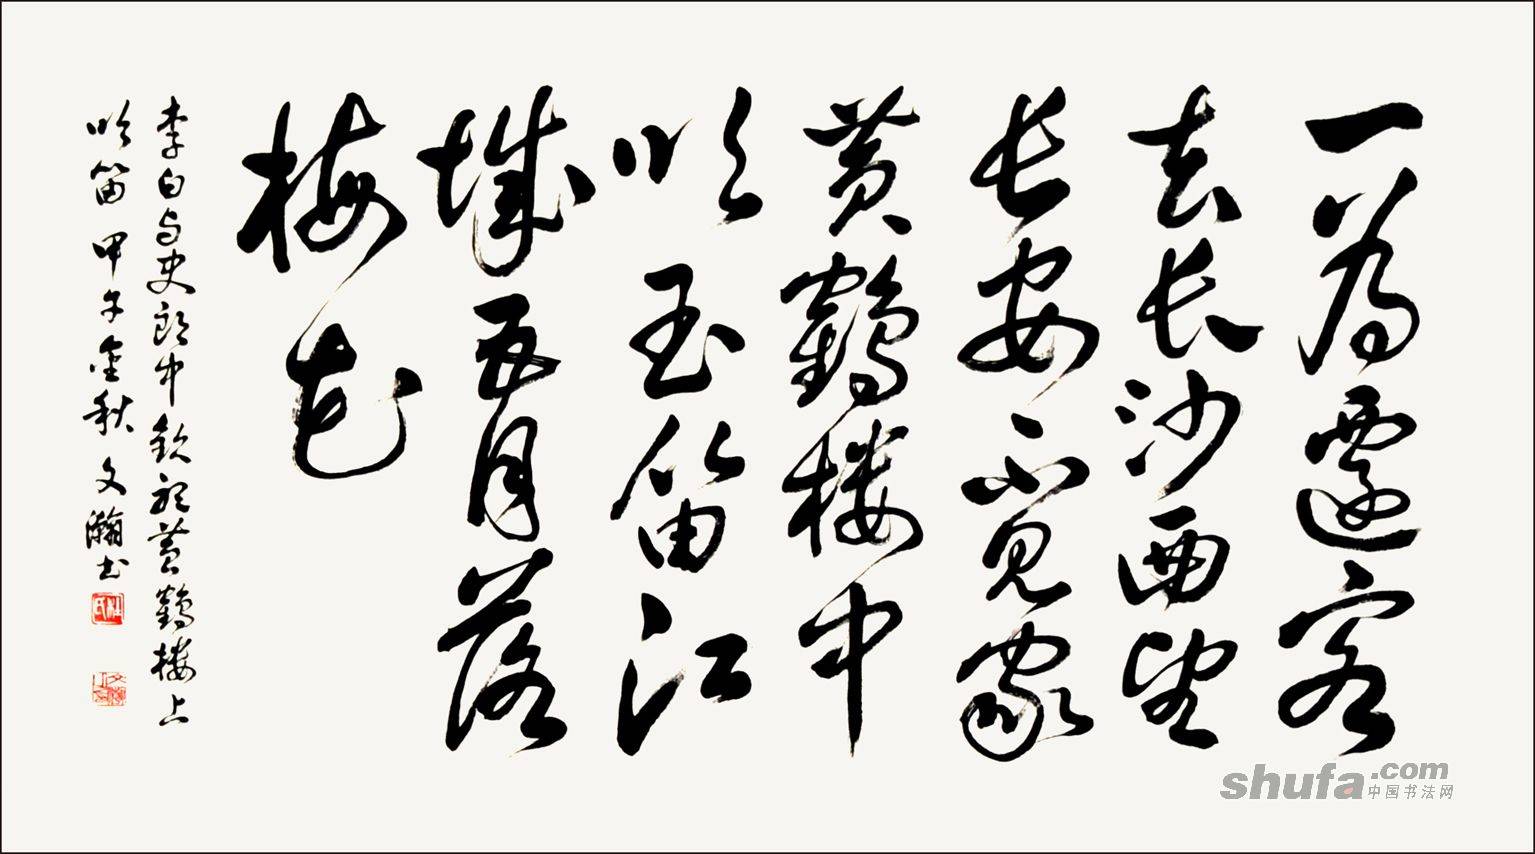 一为迁客
去长沙西望
长安不见家
黄鹤楼中
吹玉笛江
城五月落
梅花
李白与史郎中钦听黄鹤楼上
吹笛 甲午金秋 文瀚书
shufa.com
中国书法网